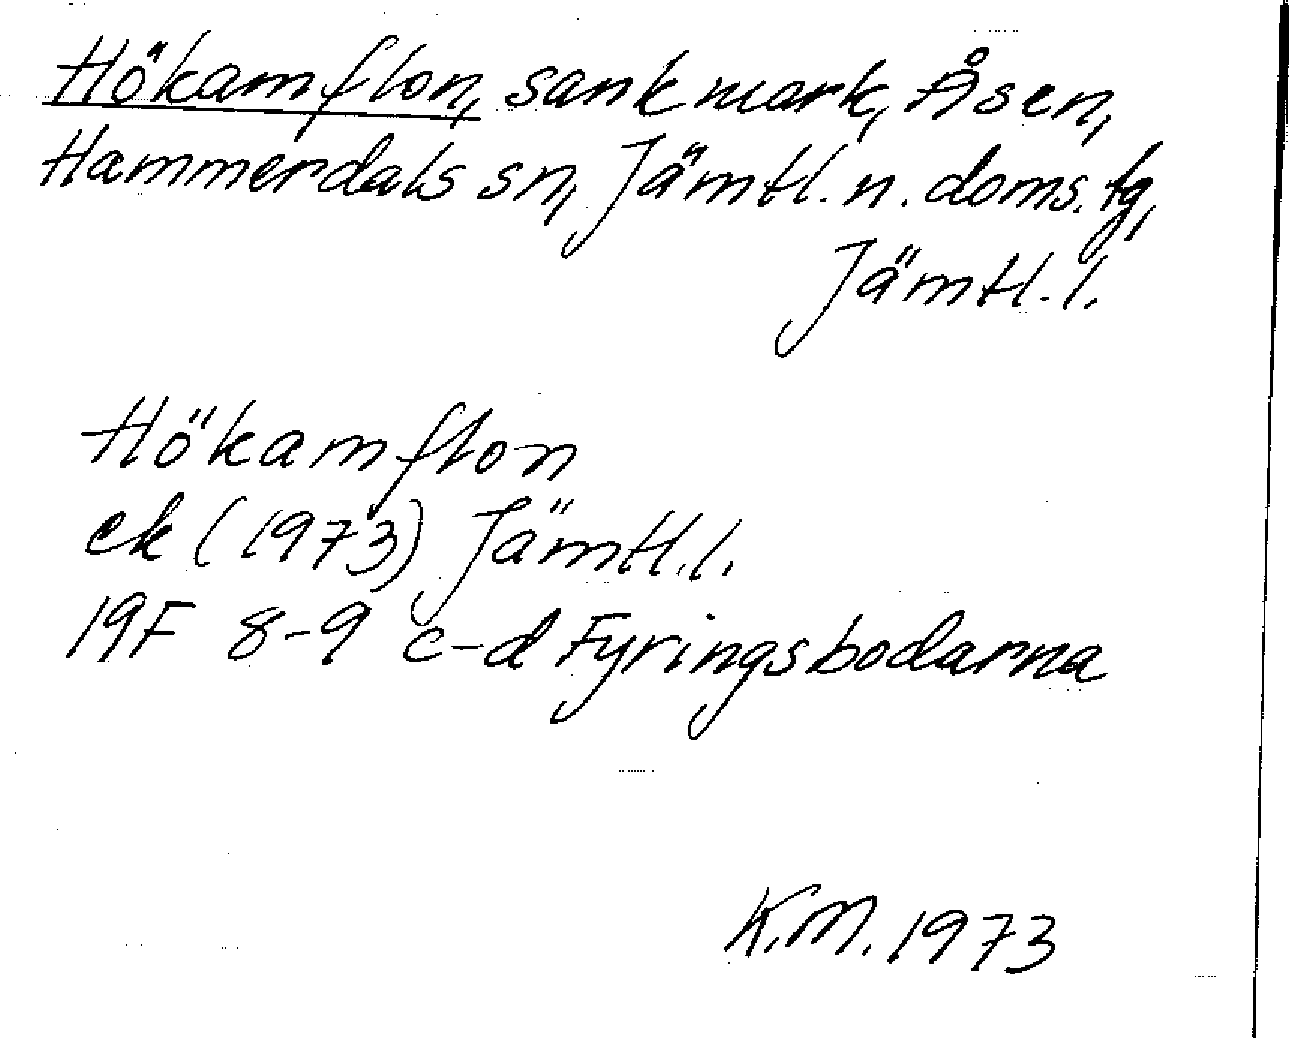 Hökamflon, sank mark, Åsen,
Hammerdals sn, Jämtl. n. doms. tg,
Jämtl. l.
Hökamflon
ek (1973) Jämtl. l.
19F 8-9 c-d Fyringsbodarna
K.M. 1973